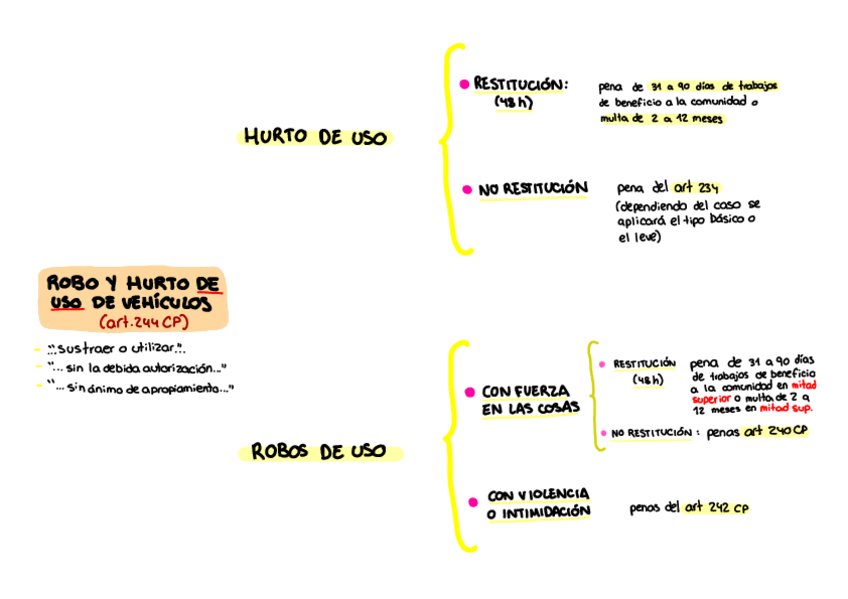 ROBO Y HURTO DE
USO DE VEHÍCULOS
(art.244 CP)
- "...sustraer o utilizar..."
- "... sin la debida autorización..."
- "... sin ánimo de apropiamiento..."
HURTO DE USO
• RESTITUCIÓN:
(48 h)
pena de 31 a 90 días de trabajos
de beneficio a la comunidad o
multa de 2 a 12 meses
• NO RESTITUCIÓN
pena del art 234
(dependiendo del caso se
aplicará el tipo básico o
el leve)
ROBOS DE USO
• CON FUERZA
EN LAS COSAS
• RESTITUCIÓN
(48h)
pena de 31 a 90 días
de trabajos de beneficio
a la comunidad en mitad
superior o multa de 2 a
12 meses en mitad sup.
• NO RESTITUCIÓN : penas art 240 CP
• CON VIOLENCIA
O INTIMIDACIÓN
penas del art 242 CP